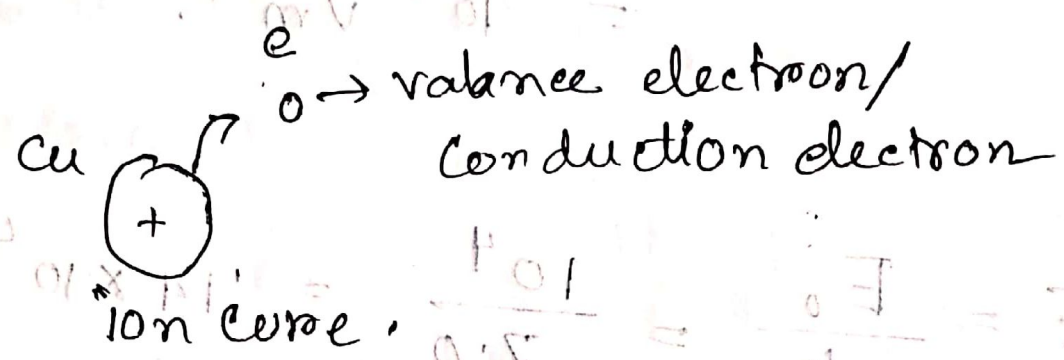 e
o → valance electron/
Cu conduction electron
+
"ion core.